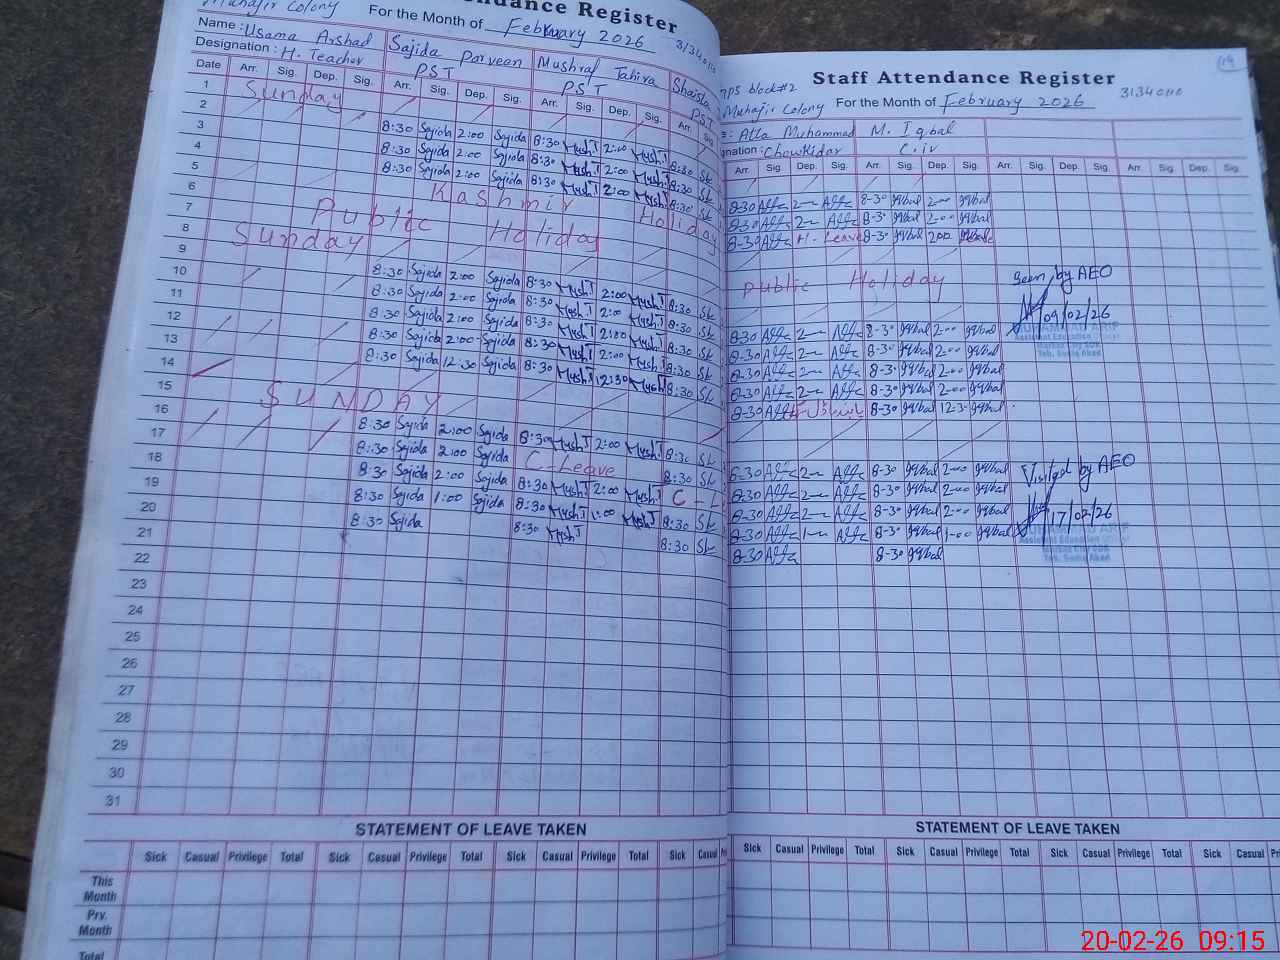 Muhajir Colony
Attendance Register
For the Month of February 2026
31340110
Name : Usama Arshad
Sajida Parveen
Mushraf Tahira
Shaista
Designation : H. Teacher
PST
PST
PST
Date Arr. Sig. Dep. Sig. Arr. Sig. Dep. Sig. Arr. Sig. Dep. Sig. Arr. Sig.
1 Sunday
2
3 8:30 Sajida 2:00 Sajida 8:30 Mush.T 2:00 Mush.T 8:30 Sh
4 8:30 Sajida 2:00 Sajida 8:30 Mush.T 2:00 Mush.T 8:30 Sh
5 8:30 Sajida 2:00 Sajida 8:30 Mush.T 2:00 Mush.T 8:30 Sh
6 Kashmir Holiday
7 Public Holiday
8 Sunday
9
10 8:30 Sajida 2:00 Sajida 8:30 Mush.T 2:00 Mush.T 8:30 Sh
11 8:30 Sajida 2:00 Sajida 8:30 Mush.T 2:00 Mush.T 8:30 Sh
12 8:30 Sajida 2:00 Sajida 8:30 Mush.T 2:00 Mush.T 8:30 Sh
13 8:30 Sajida 2:00 Sajida 8:30 Mush.T 2:00 Mush.T 8:30 Sh
14 8:30 Sajida 12:30 Sajida 8:30 Mush.T 12:30 Mush.T 8:30 Sh
15 SUNDAY
16
17 8:30 Sajida 2:00 Sajida 8:30 Mush.T 2:00 Mush.T 8:30 Sh
18 8:30 Sajida 2:00 Sajida C-Leave 8:30 Sh
19 8:30 Sajida 2:00 Sajida 8:30 Mush.T 2:00 Mush.T C-L
20 8:30 Sajida 1:00 Sajida 8:30 Mush.T 1:00 Mush.T 8:30 Sh
21 8:30 Sajida 8:30 Mush.T 8:30 Sh
22
23
24
25
26
27
28
29
30
31
STATEMENT OF LEAVE TAKEN
Sick Casual Privilege Total Sick Casual Privilege Total Sick Casual Privilege Total Sick Casual
This Month
Prv. Month
Total
19
Staff Attendance Register
mps block#2
Muhajir Colony
For the Month of February 2026
31340110
Atta Muhammad
M. Iqbal
Chowkidar
C.iv
Arr. Sig. Dep. Sig. Arr. Sig. Dep. Sig. Arr. Sig. Dep. Sig. Arr. Sig. Dep. Sig.
8-30 Atta 2- Atta 8-30 Iqbal 2-00 Iqbal
8-30 Atta 2- Atta 8-30 Iqbal 2-00 Iqbal
8-30 Atta H-Leave 8-30 Iqbal 2-00
Public Holiday
Seen by AEO
09/02/26
MUHAMMAD ARIF
Assistant Education Officer
8-30 Atta 2- Atta 8-30 Iqbal 2-00 Iqbal
8-30 Atta 2- Atta 8-30 Iqbal 2-00 Iqbal
8-30 Atta 2- Atta 8-30 Iqbal 2-00 Iqbal
8-30 Atta 2- Atta 8-30 Iqbal 2-00 Iqbal
8-30 Atta 8-30 Iqbal 12-30 Iqbal
Visited by AEO
17/02/26
Assistant Education Officer
8-30 Atta 2- Atta 8-30 Iqbal 2-00 Iqbal
8-30 Atta 2- Atta 8-30 Iqbal 2-00 Iqbal
8-30 Atta 2- Atta 8-30 Iqbal 2-00 Iqbal
8-30 Atta 1- Atta 8-30 Iqbal 1-00 Iqbal
8-30 Atta 8-30 Iqbal
STATEMENT OF LEAVE TAKEN
Sick Casual Privilege Total Sick Casual Privilege Total Sick Casual Privilege Total Sick Casual
20-02-26 09:15